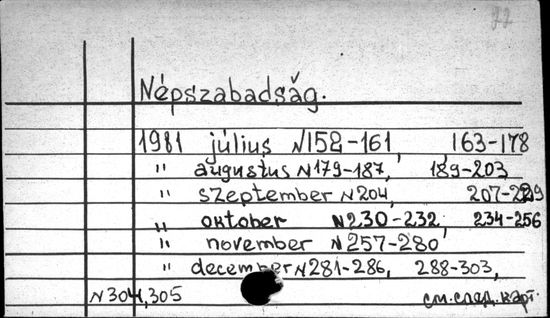 77
Népszabadság.
1981 július N152-161, 163-178
" augustus N179-187, 189-203
" szeptember N204, 207-229
" oktober N230-232, 234-256
" november N257-280
" december N281-286, 288-303,
N304,305 см.след.карт.